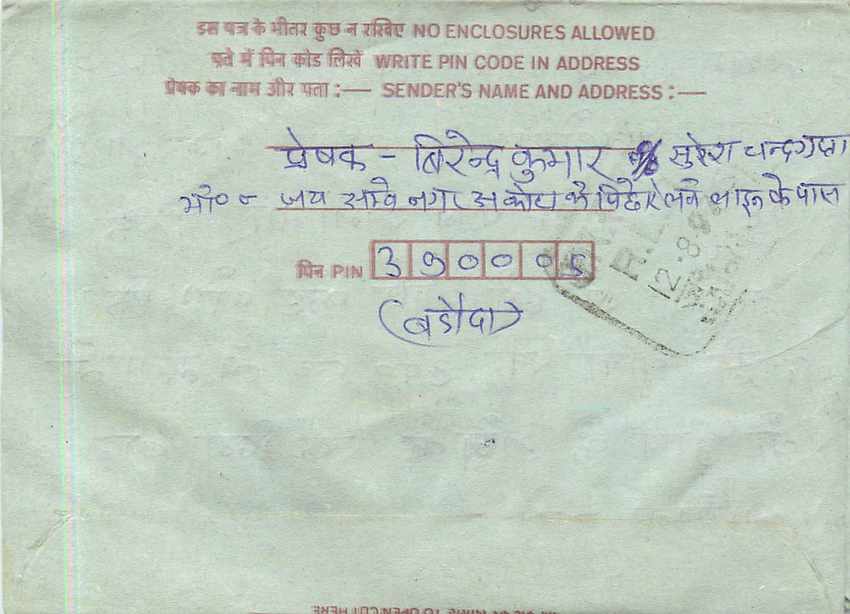 इस पत्र के भीतर कुछ न रखिए NO ENCLOSURES ALLOWED
पते में पिन कोड लिखें WRITE PIN CODE IN ADDRESS
प्रेषक का नाम और पता :— SENDER'S NAME AND ADDRESS :—
प्रेषक - बिरेन्द्र कुमार c/o सुरेश चन्द गुप्ता
जय अम्बे नगर अकोटा के पिछे रेलवे लाइन के पास
पिन PIN 390005
(बडौदा)
R.L.
12.8.9
TO OPEN CUT HERE